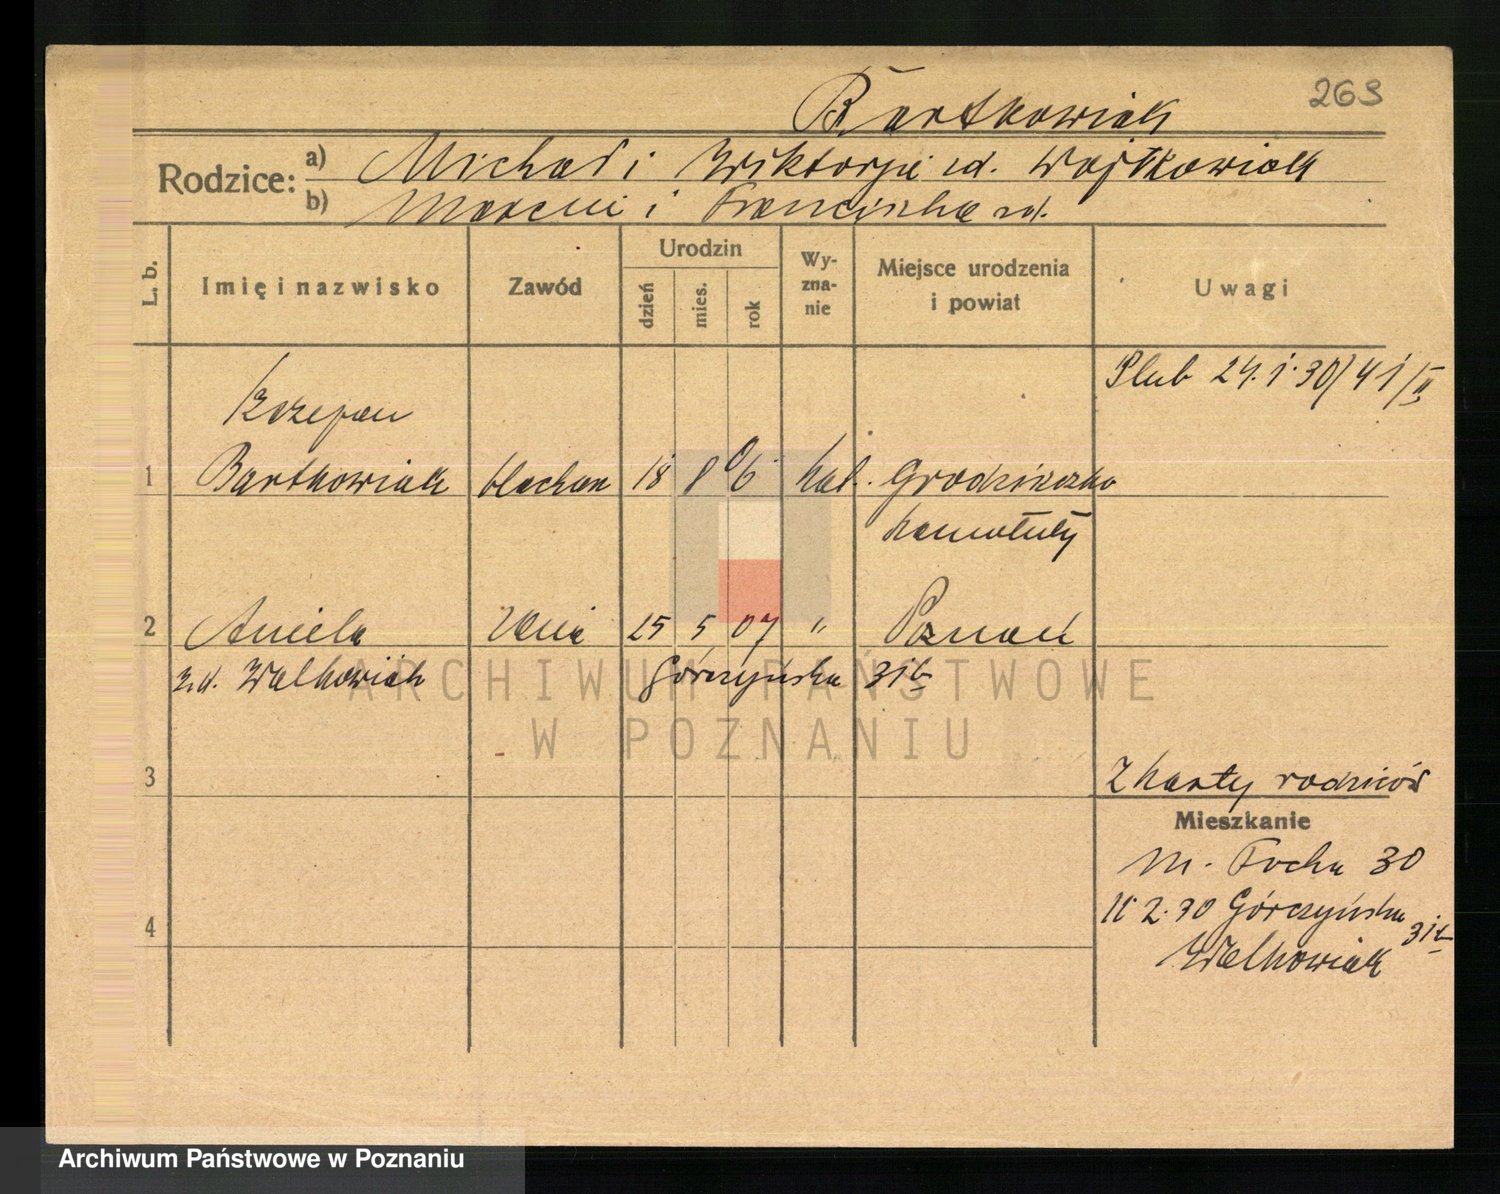 Bartkowiak
263
Rodzice:
a) Michał i Wiktorja zd. Wojtkowiak
b) Marcin i Franciszka zd.
L. b.
Imię i nazwisko
Zawód
Urodzin
dzień
mies.
rok
Wy-
zna-
nie
Miejsce urodzenia
i powiat
Uwagi
Ślub 24.1.30/41/II
Szczepan
1 Bartkowiak blacharz 18 8 06 kat. Grodziszczko
Szamotuły
2 Aniela żona 25 5 07 " Poznań
z.d. Walkowiak Górczyńska 31b
ARCHIWUM PAŃSTWOWE
W POZNANIU
3
Z karty rodziców
Mieszkanie
M. Focha 30
2.30 Górczyńska
31b
Walkowiak
4
Archiwum Państwowe w Poznaniu